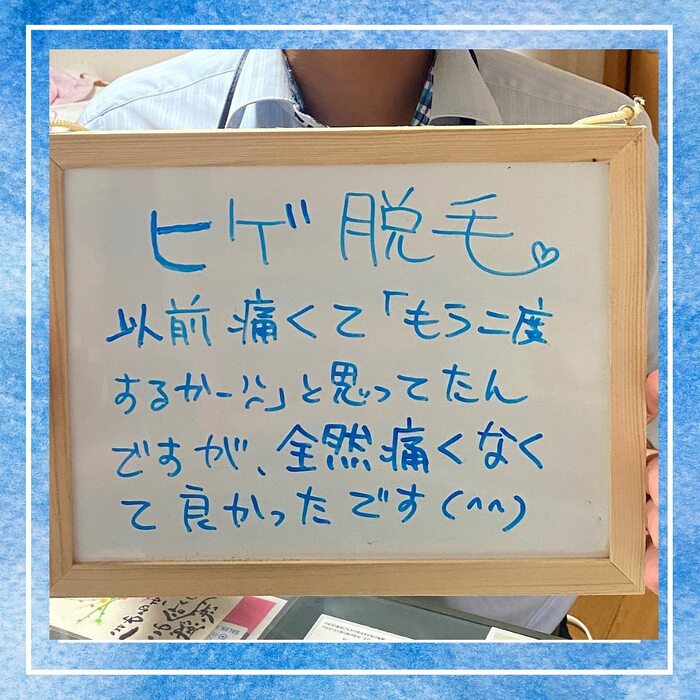 ヒゲ脱毛♡
以前痛くて「もう二度
するかー!!」と思ってたん
ですが、全然痛くなく
て良かったです(^^)